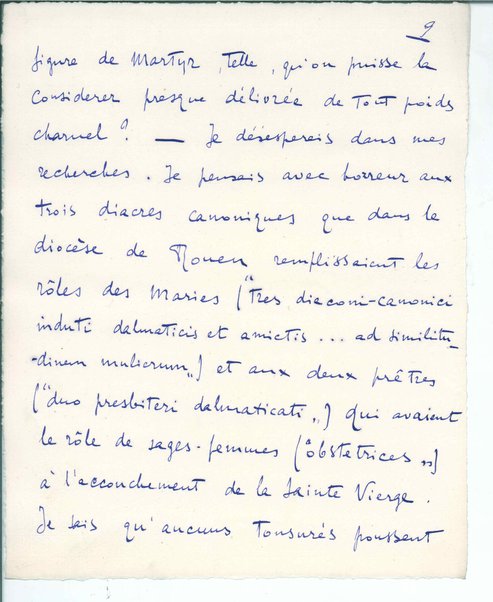 9
figure de Martyr, telle, qu'on puisse la
considerer presque délivrée de tout poids
charnel ? — Je désesperais dans mes
recherches. Je pensais avec horreur aux
trois diacres canoniques que dans le
diocèse de Rouen remplissaient les
rôles des Maries ("tres diaconi-canonici
induti dalmaticis et amictis ... ad similitu-
-dinem mulierum„) et aux deux prêtres
("duo presbiteri dalmaticati„) qui avaient
le rôle de sages-femmes ("obstetrices„)
à l'accouchement de la Sainte Vierge.
Je sais qu'aucuns tonsurés poussent